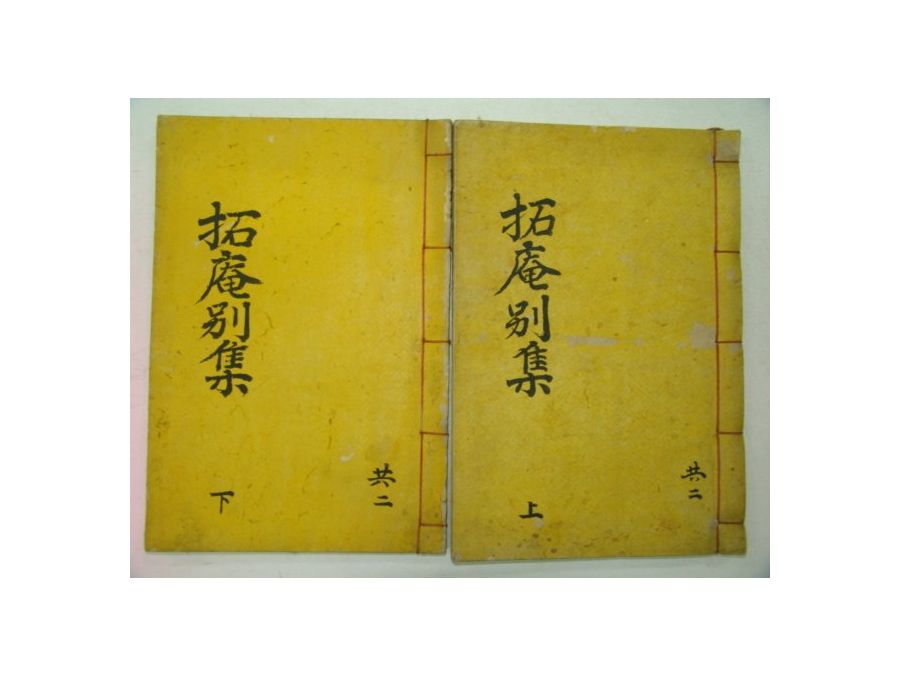 拓庵別集
上
共二
拓庵別集
下
共二